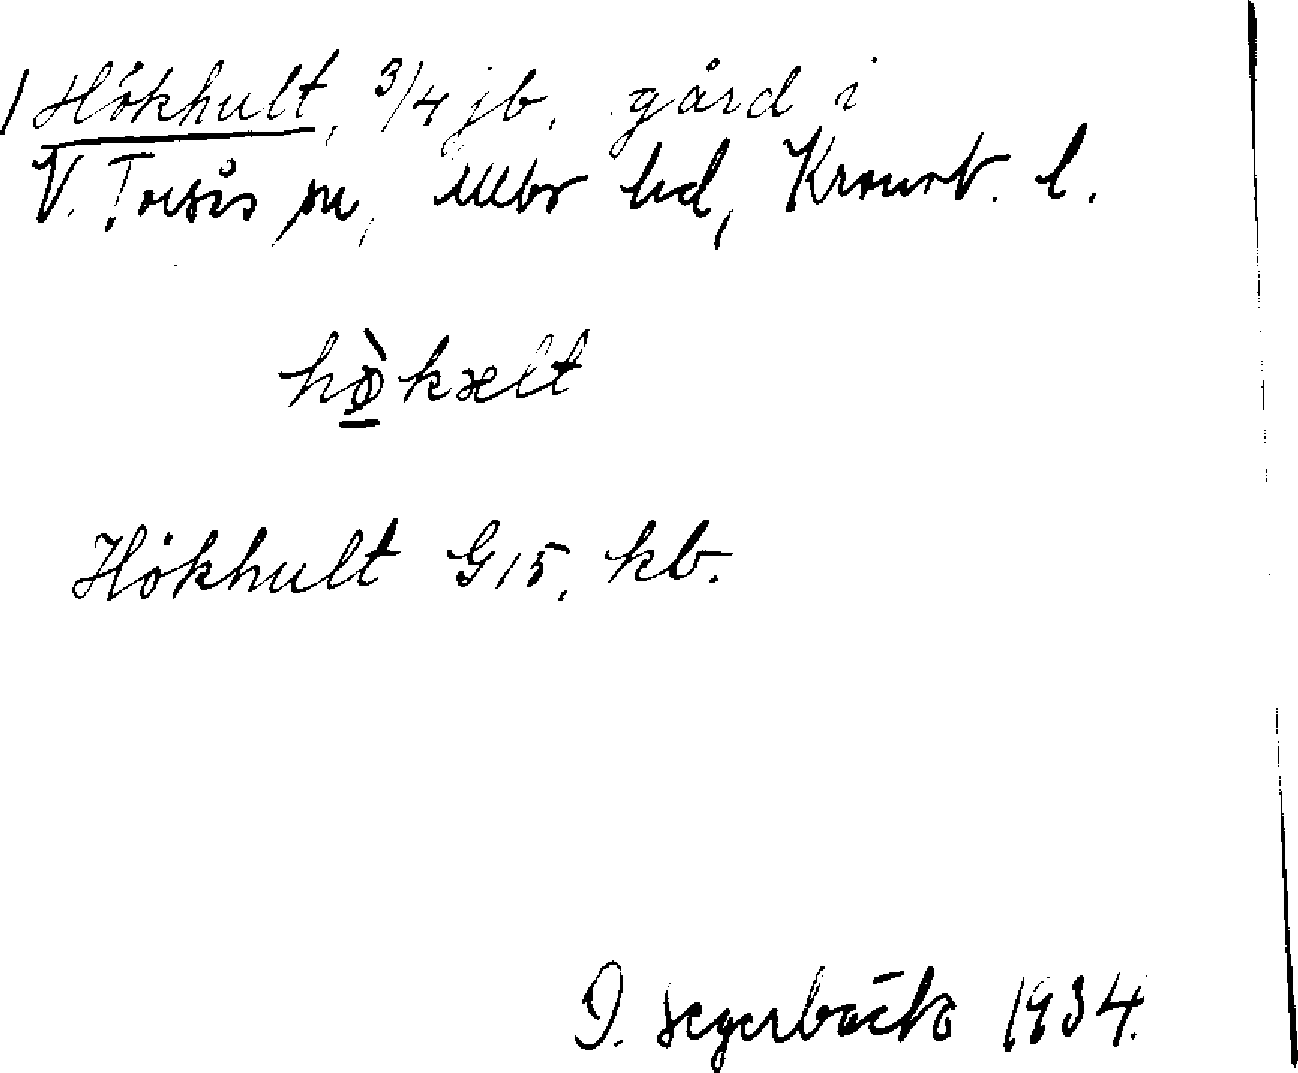 1 Hökhult, 3/4 jb. gård i
V. Torsås sn, Allbo hd, Kronob. l.
hø̀kælt
Hökhult G15, kb.
D. Segerbäck 1934.